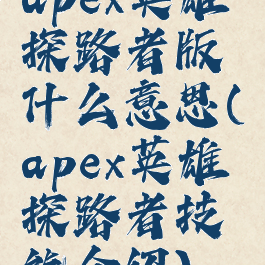 apex英雄
探路者版
什么意思(
apex英雄
探路者技
能介绍)